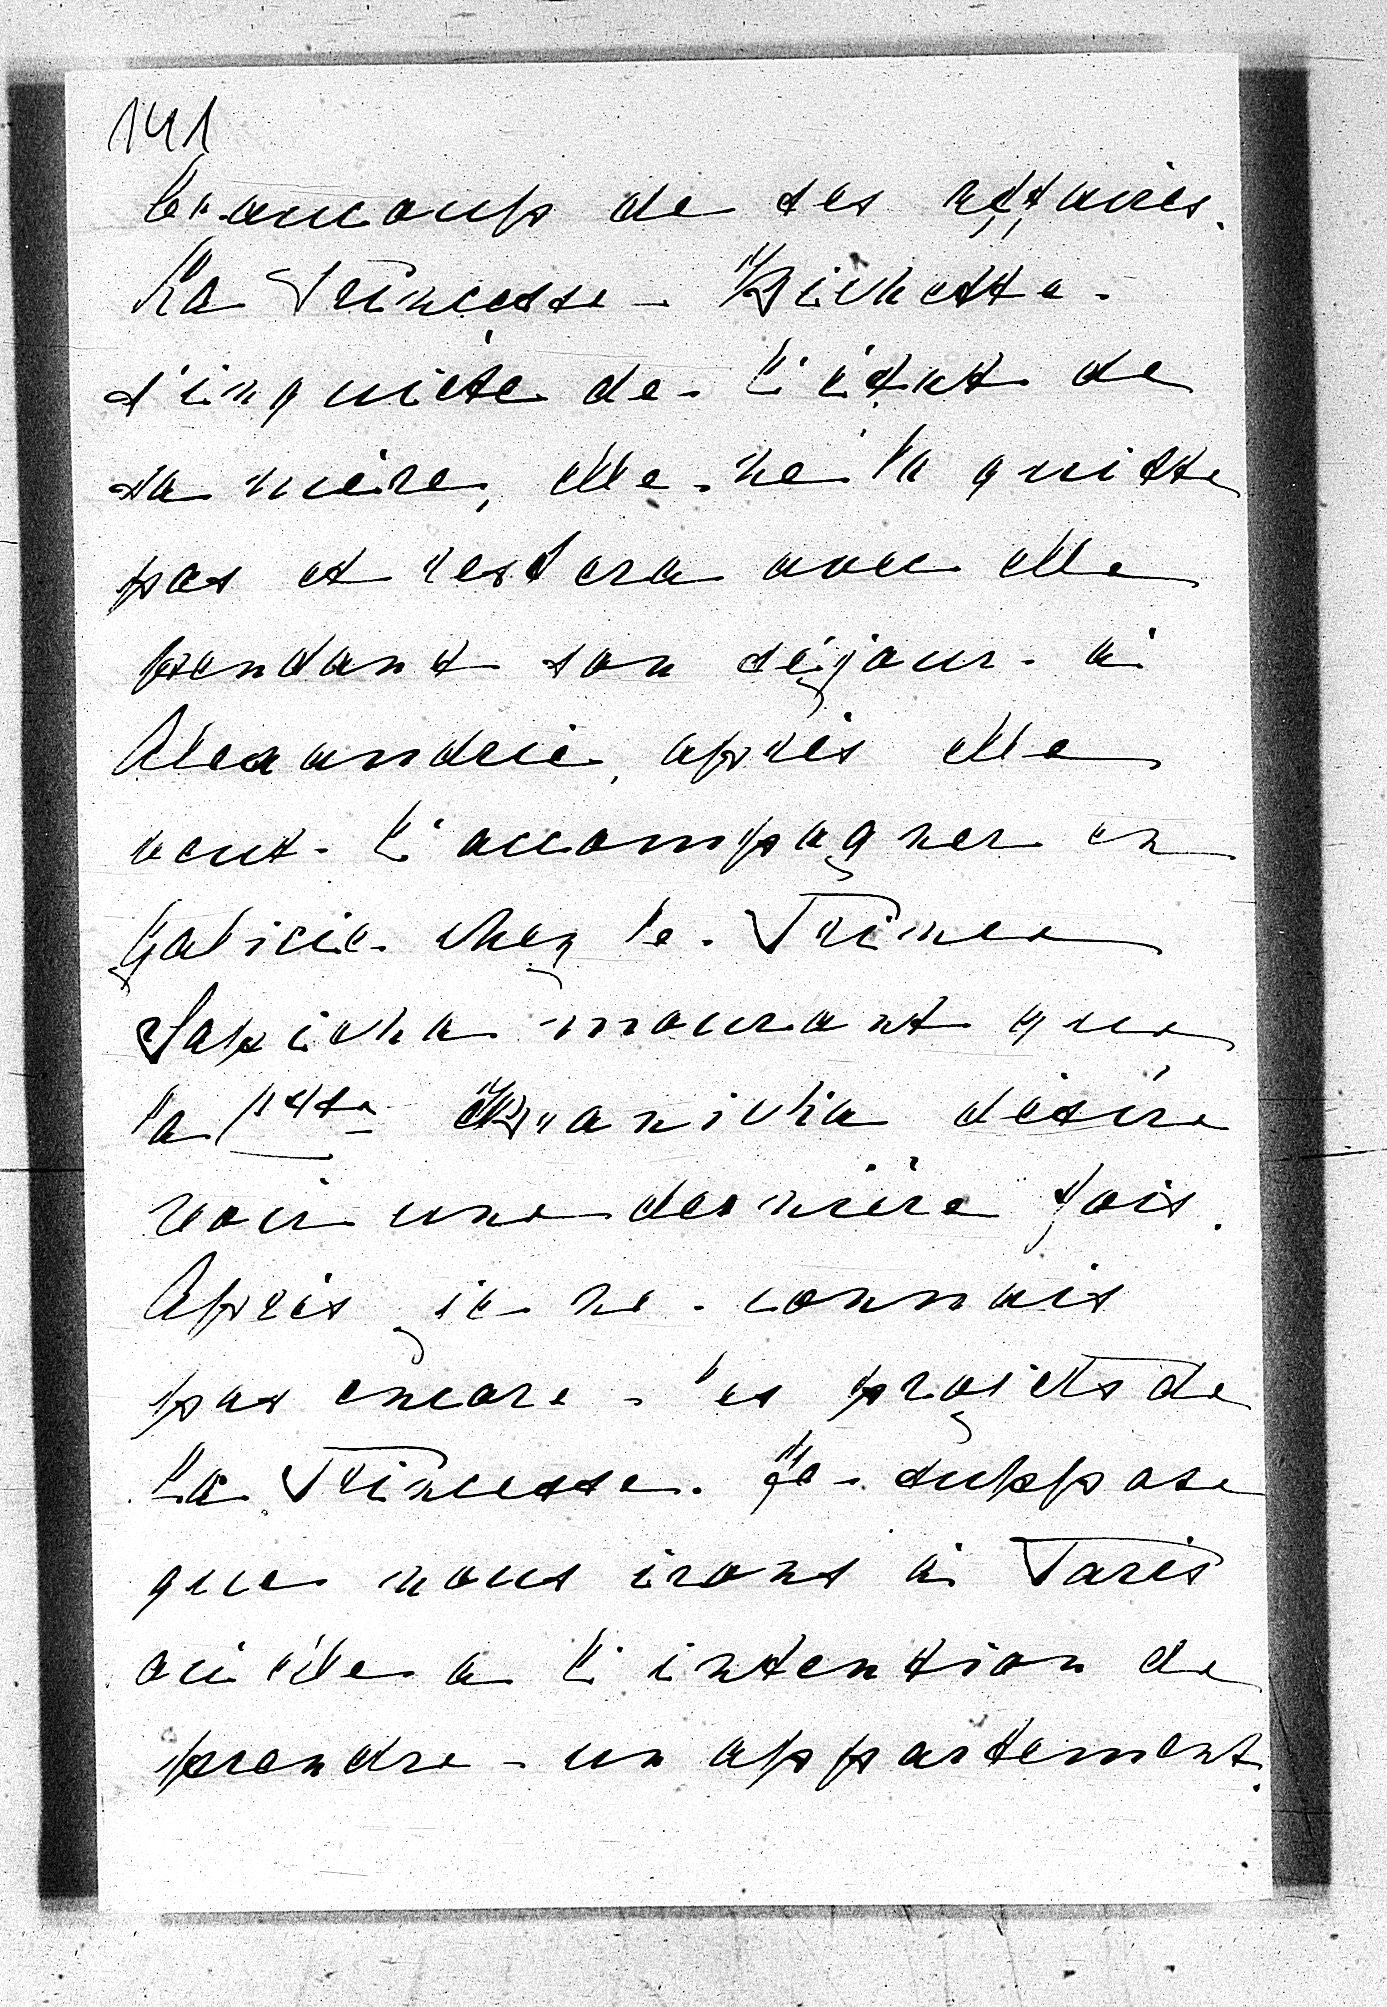 141
beaucoup de ses affaires.
La Princesse Bichette
s'inquiète de l'état de
sa mère, elle ne la quitte
pas et restera avec elle
pendant son séjour à
Alexandrie, après elle
veut l'accompagner en
Galicie chez le Prince
Sapieha mourant que
la Psse Branicka désire
voir une dernière fois.
Après je ne connais
pas encore les projets de
la Princesse. Je suppose
que nous irons à Paris
où elle a l'intention de
prendre un appartement.